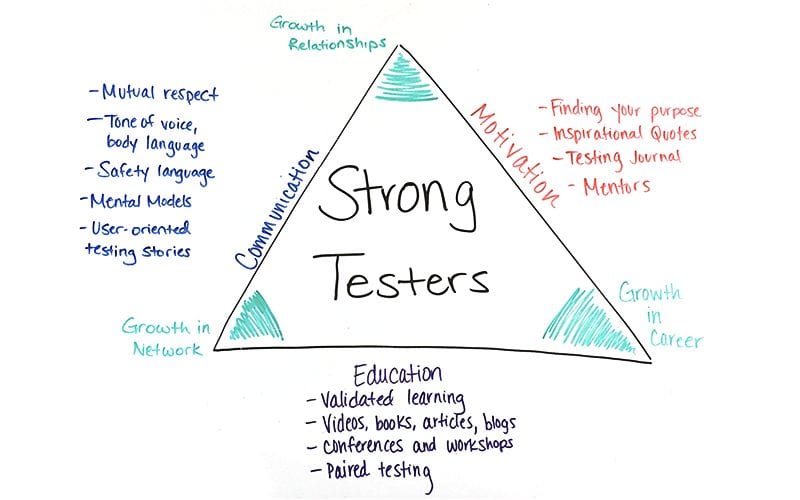 Growth in
Relationships
- Mutual respect
- Tone of voice,
body language
- Safety language
- Mental Models
- User-oriented
testing stories
Communication
Motivation
- Finding your purpose
- Inspirational Quotes
- Testing Journal
- Mentors
Strong
Testers
Growth in
Network
Growth
in
Career
Education
- Validated learning
- Videos, books, articles, blogs
- Conferences and workshops
- Paired testing